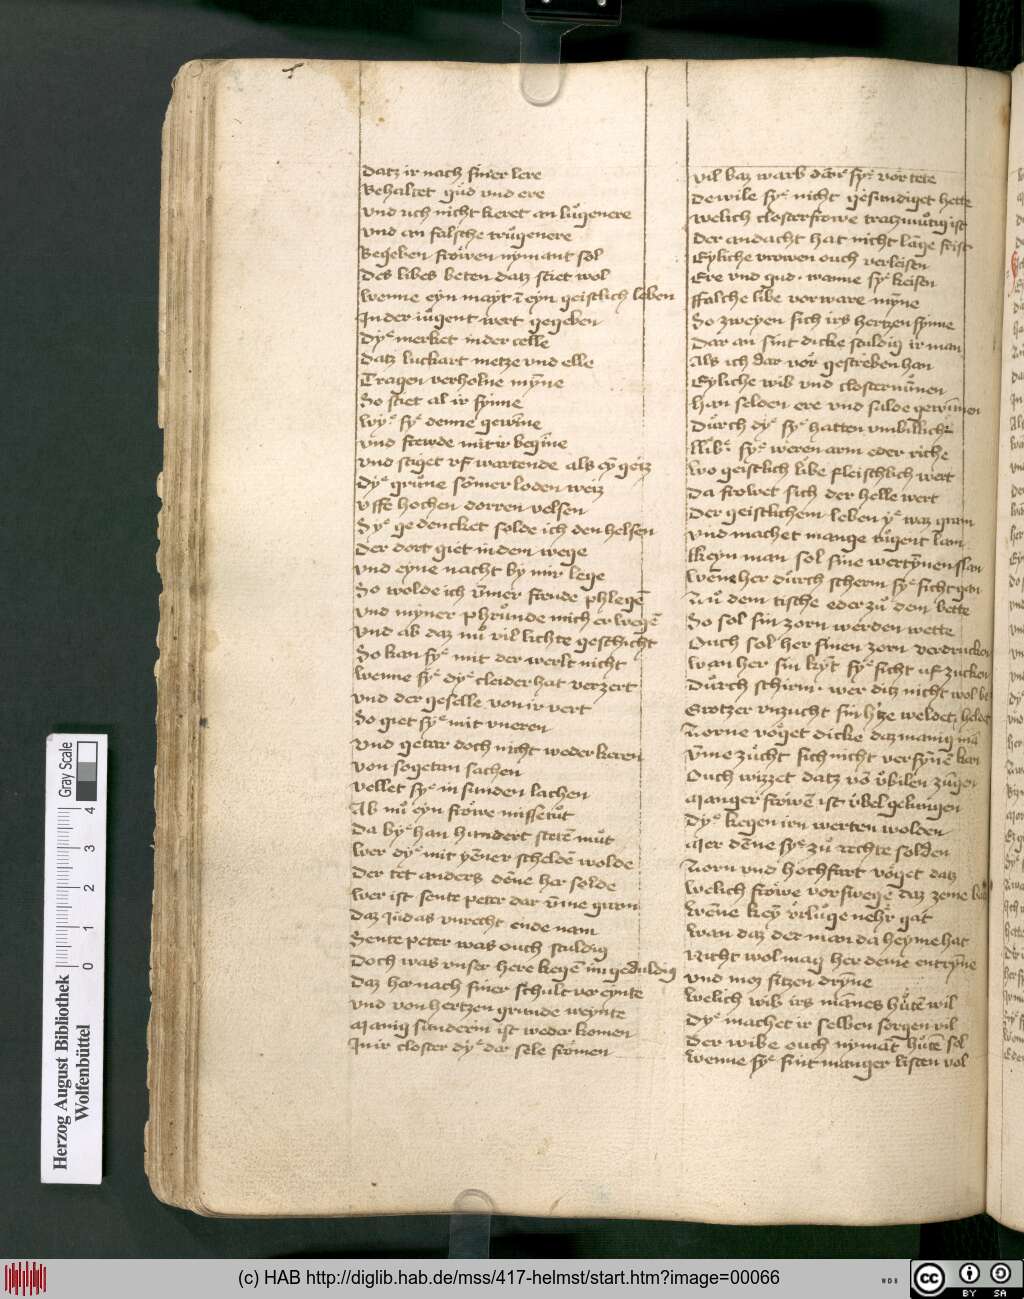 Datz ir nach siner lere
Behaltet gůd vnd ere
Vnd uch nicht keret an lůgenere
Vnd an falsche trůgenere
Begeben frowen nymant sol
Des libes beten datz stiet wol
Wenne eyn mayt ī eyn geistlich leben
In der iůgent wert gegeben
Dyͤ merket in der celle
Datz luckart metze vnd elle
Tragen verholne myn̄e
So stiet al ir synne
Wyͤ syͤ denne gewīne
Vnd frewde mit ir begīne
Vnd stiget vf wartende als eȳ geiz
Dyͤ grune somer loden weiz
Vffē hochen dorren velsen
Syͤ gedencket solde ich den helsen
Der dort giet in dem wege
Vnd eyne nacht by mir lege
So wolde ich v̄mer frende phlegē
Vnd myner phrůnde mich er wegē
Vnd ab daz nů vil lichte geschicht
So kan syͤ mit der werlt nicht
Wenne syͤ dyͤ cleider hat verzert
Vnd der geselle von ir vert
So giet syͤ mit vneren
Vnd getar doch nicht weder keren
Von sogetan sachen
Vellet syͤ in sunden lachen
Ab nů eyn frowe missetůt
Da byͤ han hundert stetē můt
Wer dyͤ mit yēner scheldē wolde
Der tet anders dēne her solde
Wer ist sente peter dar v̄me gram
Daz Judas vnrecht ende nam
Sente peter was ouch sculdig
Doch was vnser here kegē im geduldig
Daz her nach siner schult ver eynte
Vnd von hertzen grunde weynte
Manig sunderin ist weder komen
In ir closter dyͤ der sele fromen
Vil baz warb dān syͤ vor tete
Dewile syͤ nicht gesundiget hette
Welich closterfrowe tratzmůtig ist
Der andacht hat nicht lāge frist
Etyliche vrowen ouch verleisen
Ere vnd gud wanne syͤ keisen
Falsche libe vor ware myn̄e
So zweyen sich irs hertzen synne
Dar an sint dicke sculdig ir man
Als ich dar vor gestreben han
Etyliche wib vnd closternůnen
Han selden ere vnd sulde gewūnen
Důrch dyͤ syͤ hatten vmbillich
Syͤ weren arm eder riche
Wo geistlich libe fleischlich wert
Da frowet sich der helle wert
Der geistlichem leben yͤ waz gram
Vnd machet mange tůgent lam
Kkeyn man sol sine wertynnen slan
Wēne her důrch scherm syͤ sicht gan
Zů dem tische eder zů dem bette
So sol sin zorn werden wette
Ouch sol her sinen zorn verdrucken
Wan her sin kyͤt syͤ sicht uf zucken
Důrch schirm wer ditz nicht wol
Grotzer vnzucht sin hitze weldet
Zorne voget dicke daz manig mā
V̄me zůcht sich nicht versȳnē kan
Ouch wizzet datz vō v̊bilen zūgen
Manger frowē ist v̊bel gelungen
Dyͤ kegen irn werten wolden
Mer dēne syͤ zů rechte solden
Zorn vnd hochfart voget daz
Welich frowe vorswegē daz zeme
Wēne keȳ vrlůge nehr̄ gat
Wan daz der man da heyme hat
Nicht wol mag her deme entryn̄e
Vnd moz sitzen dryn̄e
Welich wib irs mānes hůtē wil
Dyͤ machet ir selben sorgen vil
Der wibe ouch nymāt hůtē sol
Wenne syͤ sint manger listen vol
Herzog August Bibliothek
Wolfenbüttel
Gray Scale
0 1 2 3 4
(c) HAB http://diglib.hab.de/mss/417-helmst/start.htm?image=00066
WDB
cc
BY SA